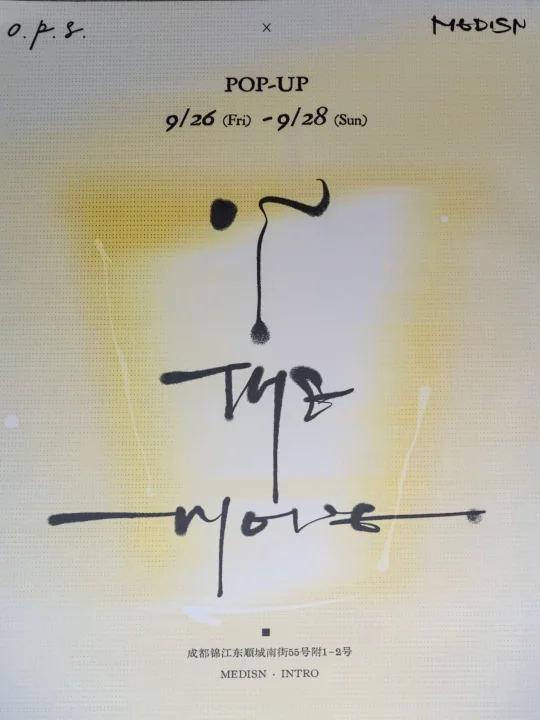 o.p.s. × MEDISN
POP-UP
9/26 (Fri) - 9/28 (Sun)
ON
THE
MOVE
成都锦江东顺城南街55号附1-2号
MEDISN · INTRO